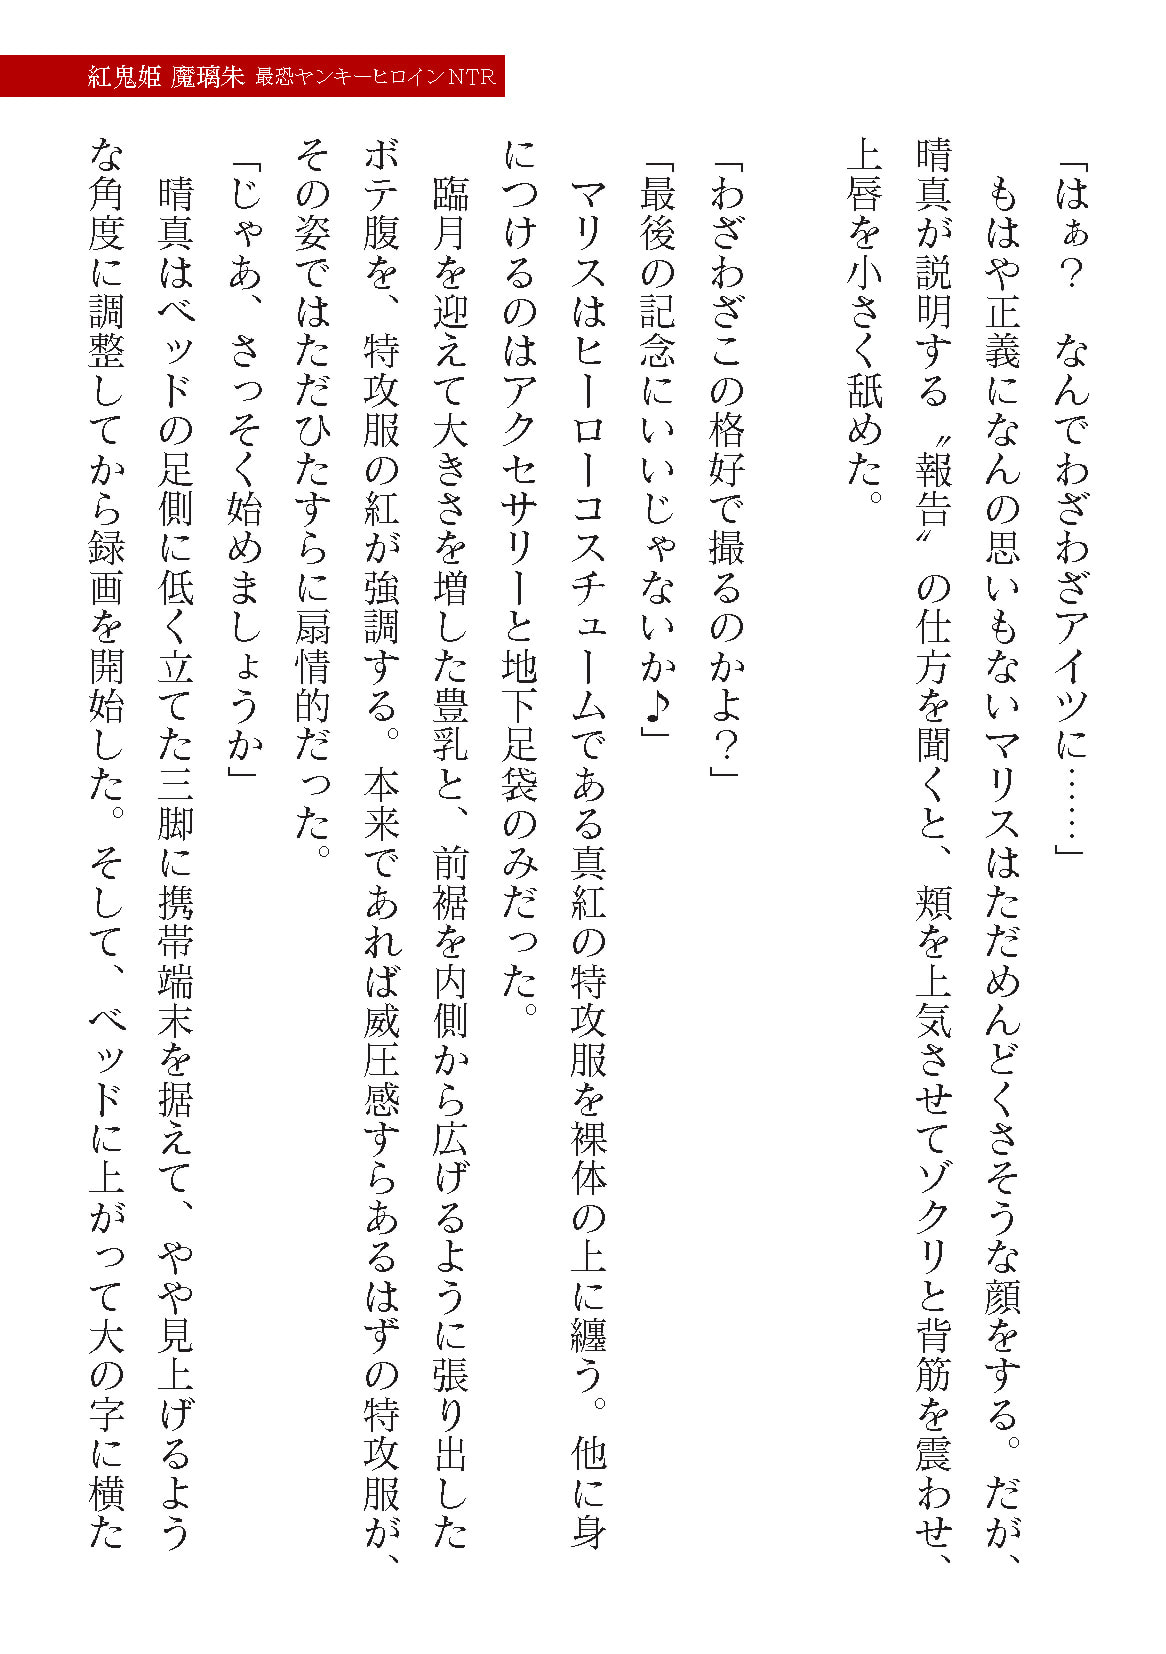 紅鬼姫 魔璃朱 最恐ヤンキーヒロインNTR
「はぁ？　なんでわざわざアイツに……」
　もはや正義になんの思いもないマリスはただめんどくさそうな顔をする。だが、
晴真が説明する〝報告〟の仕方を聞くと、頬を上気させてゾクリと背筋を震わせ、
上唇を小さく舐めた。
「わざわざこの格好で撮るのかよ？」
「最後の記念にいいじゃないか♪」
　マリスはヒーローコスチュームである真紅の特攻服を裸体の上に纏う。他に身
につけるのはアクセサリーと地下足袋のみだった。
　臨月を迎えて大きさを増した豊乳と、前裾を内側から広げるように張り出した
ボテ腹を、特攻服の紅が強調する。本来であれば威圧感すらあるはずの特攻服が、
その姿ではただひたすらに扇情的だった。
「じゃあ、さっそく始めましょうか」
　晴真はベッドの足側に低く立てた三脚に携帯端末を据えて、やや見上げるよう
な角度に調整してから録画を開始した。そして、ベッドに上がって大の字に横た